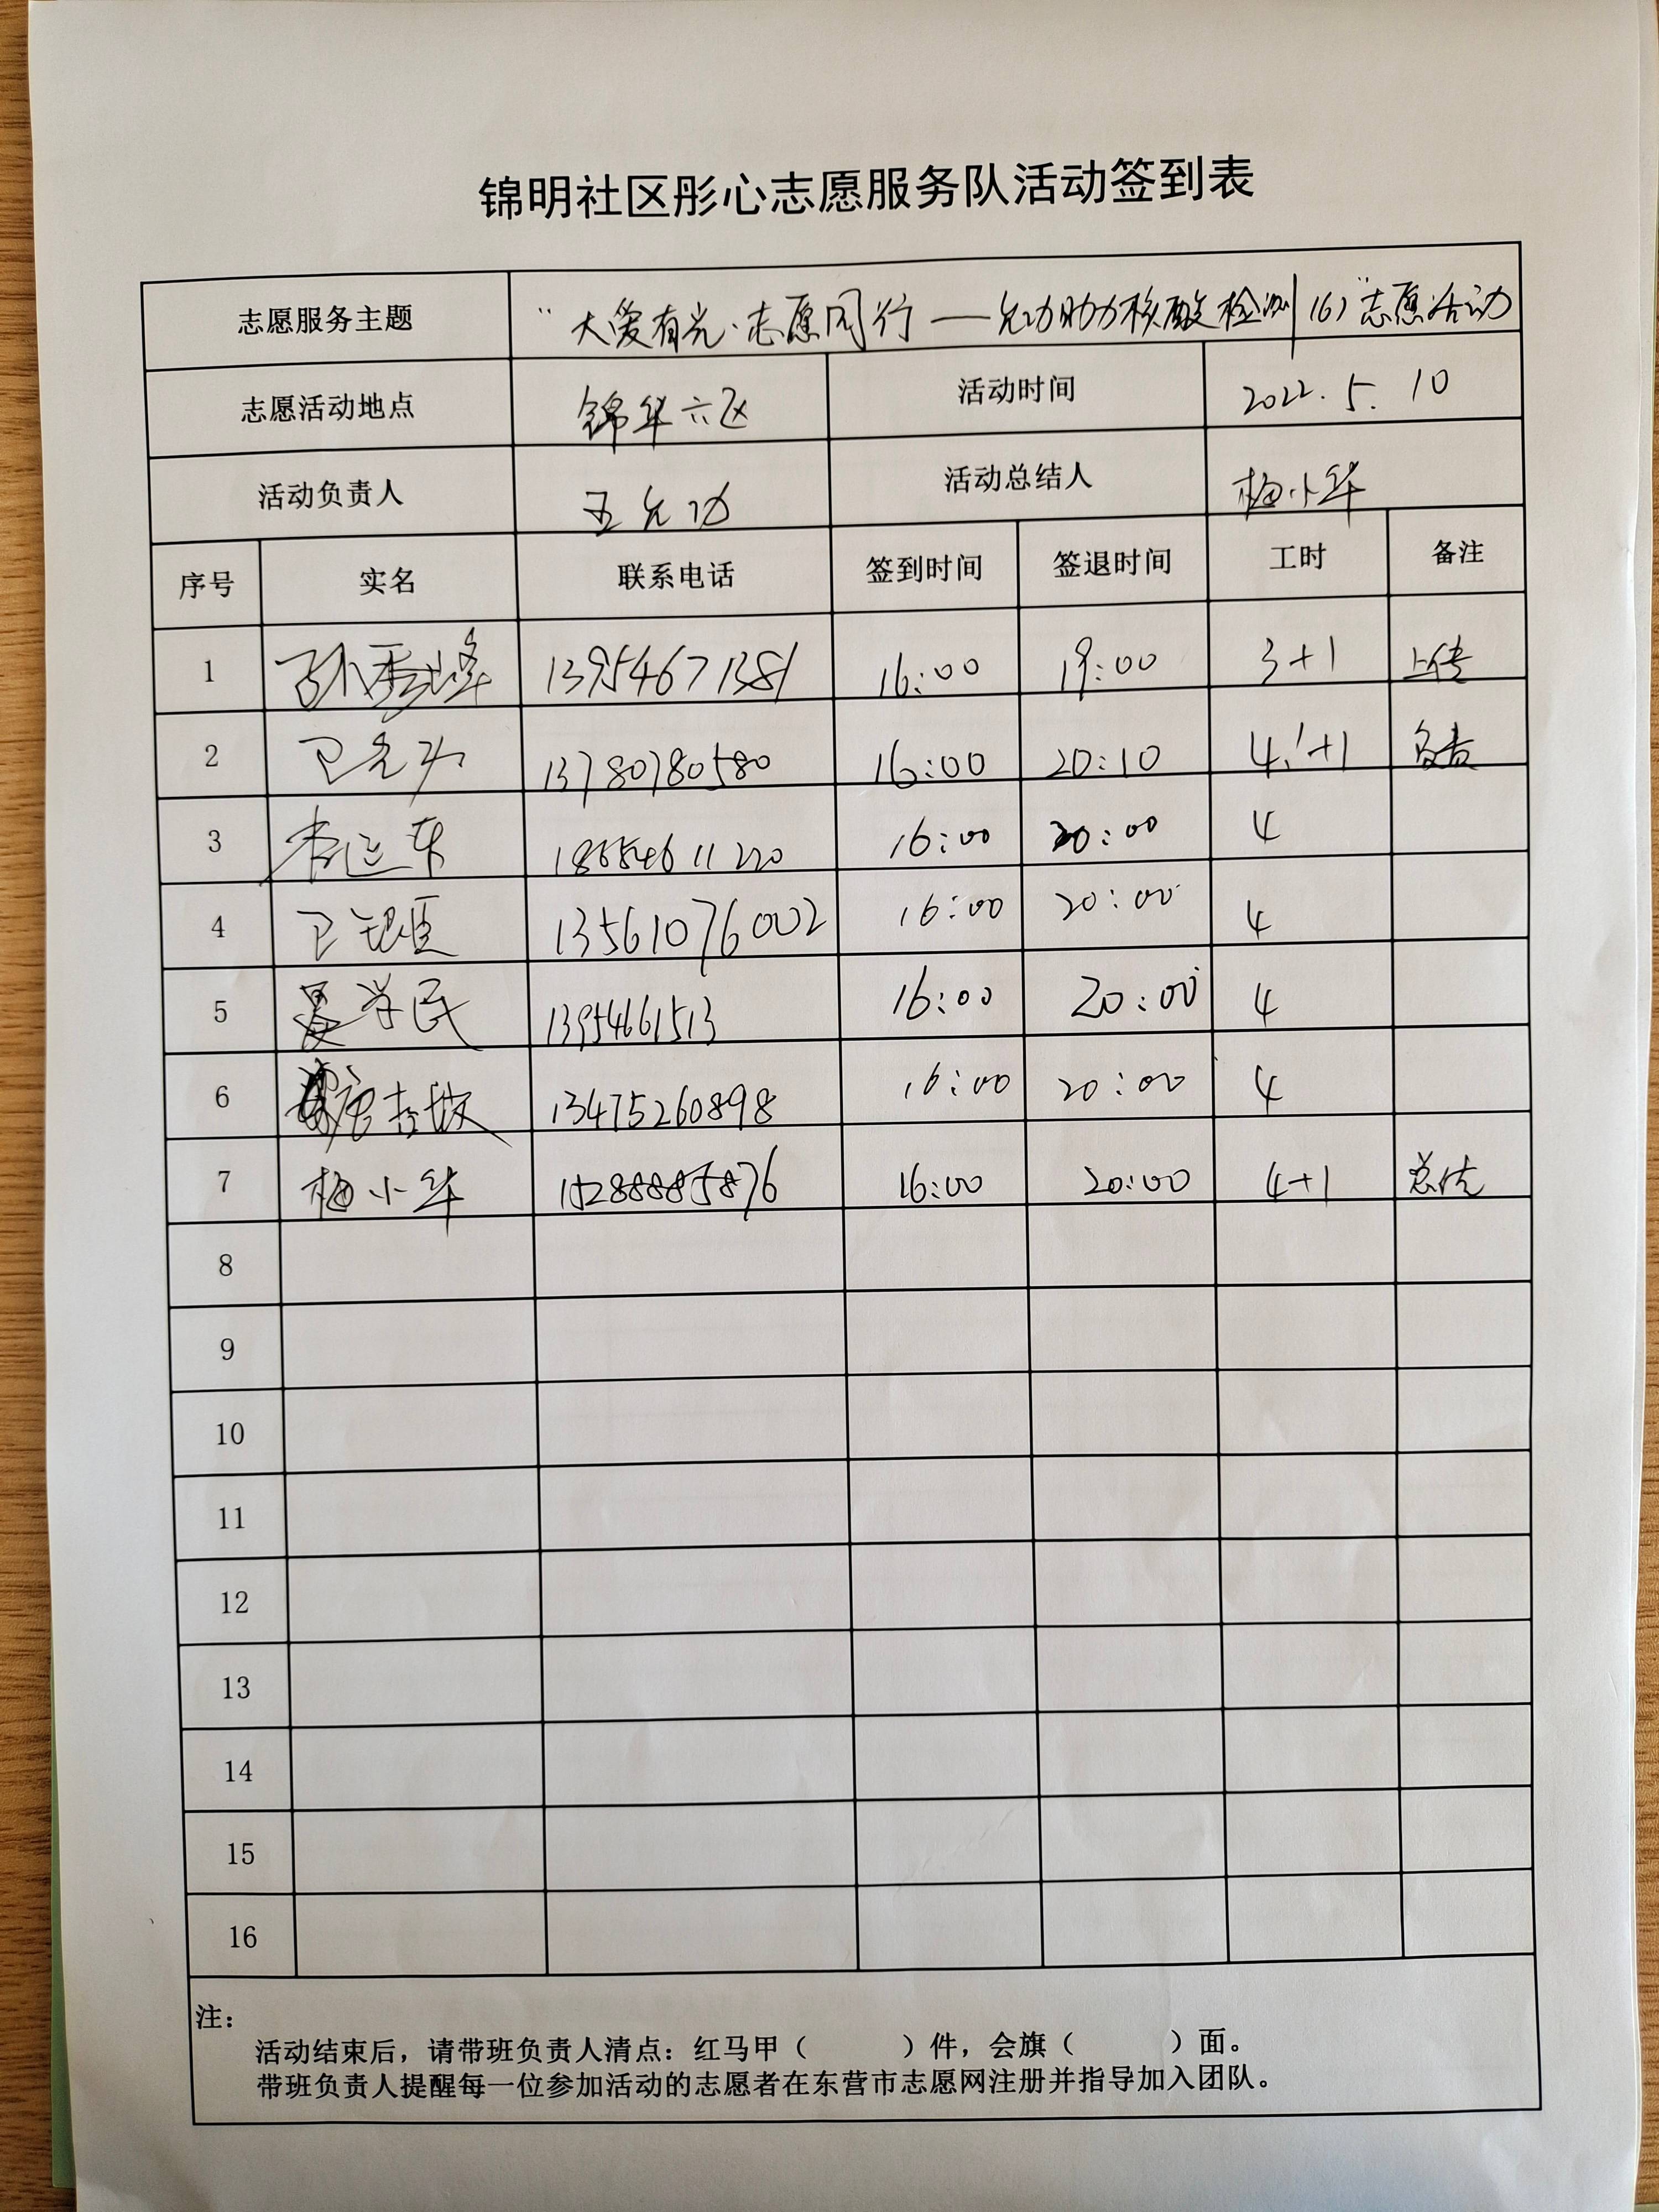 锦明社区彤心志愿服务队活动签到表
志愿服务主题 "大爱有光·志愿同行——允功助力核酸检测(6)"志愿活动
志愿活动地点 锦华六区 活动时间 2022.5.10
活动负责人 王允功 活动总结人 梅小华
序号 实名 联系电话 签到时间 签退时间 工时 备注
1 孙秀峰 13954671381 16:00 19:00 3+1 上传
2 王允功 13780780580 16:00 20:10 4.1+1 负责
3 李运东 18654611220 16:00 20:00 4
4 13561076002 16:00 20:00 4
5 学民 13954661513 16:00 20:00 4
6 13475260898 16:00 20:00 4
7 梅小华 15288885876 16:00 20:00 4+1 总结
8
9
10
11
12
13
14
15
16
注:
活动结束后,请带班负责人清点:红马甲( )件,会旗( )面。
带班负责人提醒每一位参加活动的志愿者在东营市志愿网注册并指导加入团队。